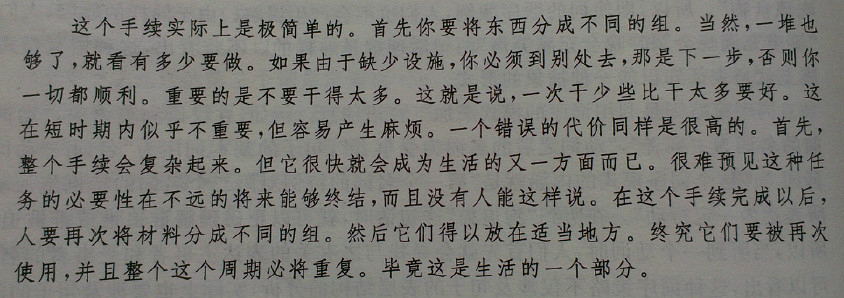 这个手续实际上是极简单的。首先你要将东西分成不同的组。当然,一堆也
够了,就看有多少要做。如果由于缺少设施,你必须到别处去,那是下一步,否则你
一切都顺利。重要的是不要干得太多。这就是说,一次干少些比干太多要好。这
在短时期内似乎不重要,但容易产生麻烦。一个错误的代价同样是很高的。首先,
整个手续会复杂起来。但它很快就会成为生活的又一方面而已。很难预见这种任
务的必要性在不远的将来能够终结,而且没有人能这样说。在这个手续完成以后,
人要再次将材料分成不同的组。然后它们得以放在适当地方。终究它们要被再次
使用,并且整个这个周期必将重复。毕竟这是生活的一个部分。